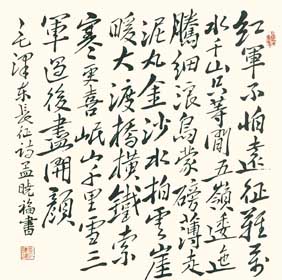 紅軍不怕遠征難萬
水千山只等閒五嶺逶迤
騰細浪烏蒙磅礴走
泥丸金沙水拍雲崖
暖大渡橋橫鐵索
寒更喜岷山千里雪三
軍過後盡開顏
毛澤东長征詩孟曉福書